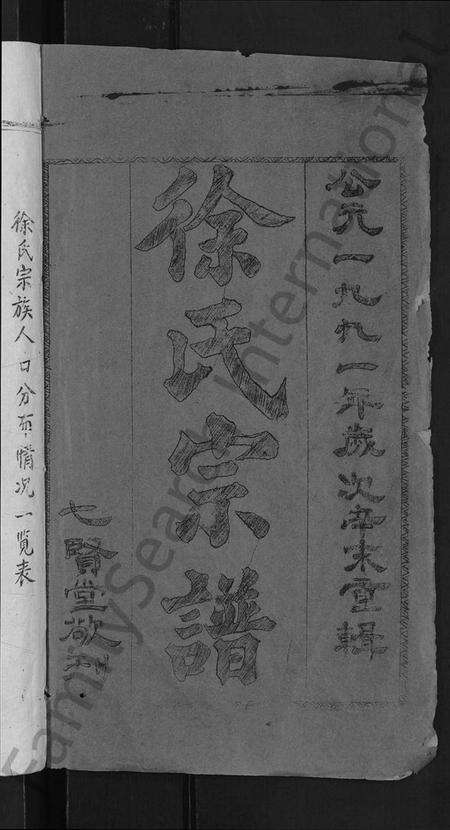 公元一九九一年歲次辛未重輯
徐氏宗譜
七賢堂敬刊
徐氏宗族人口分布情况一覧表
FamilySearch International